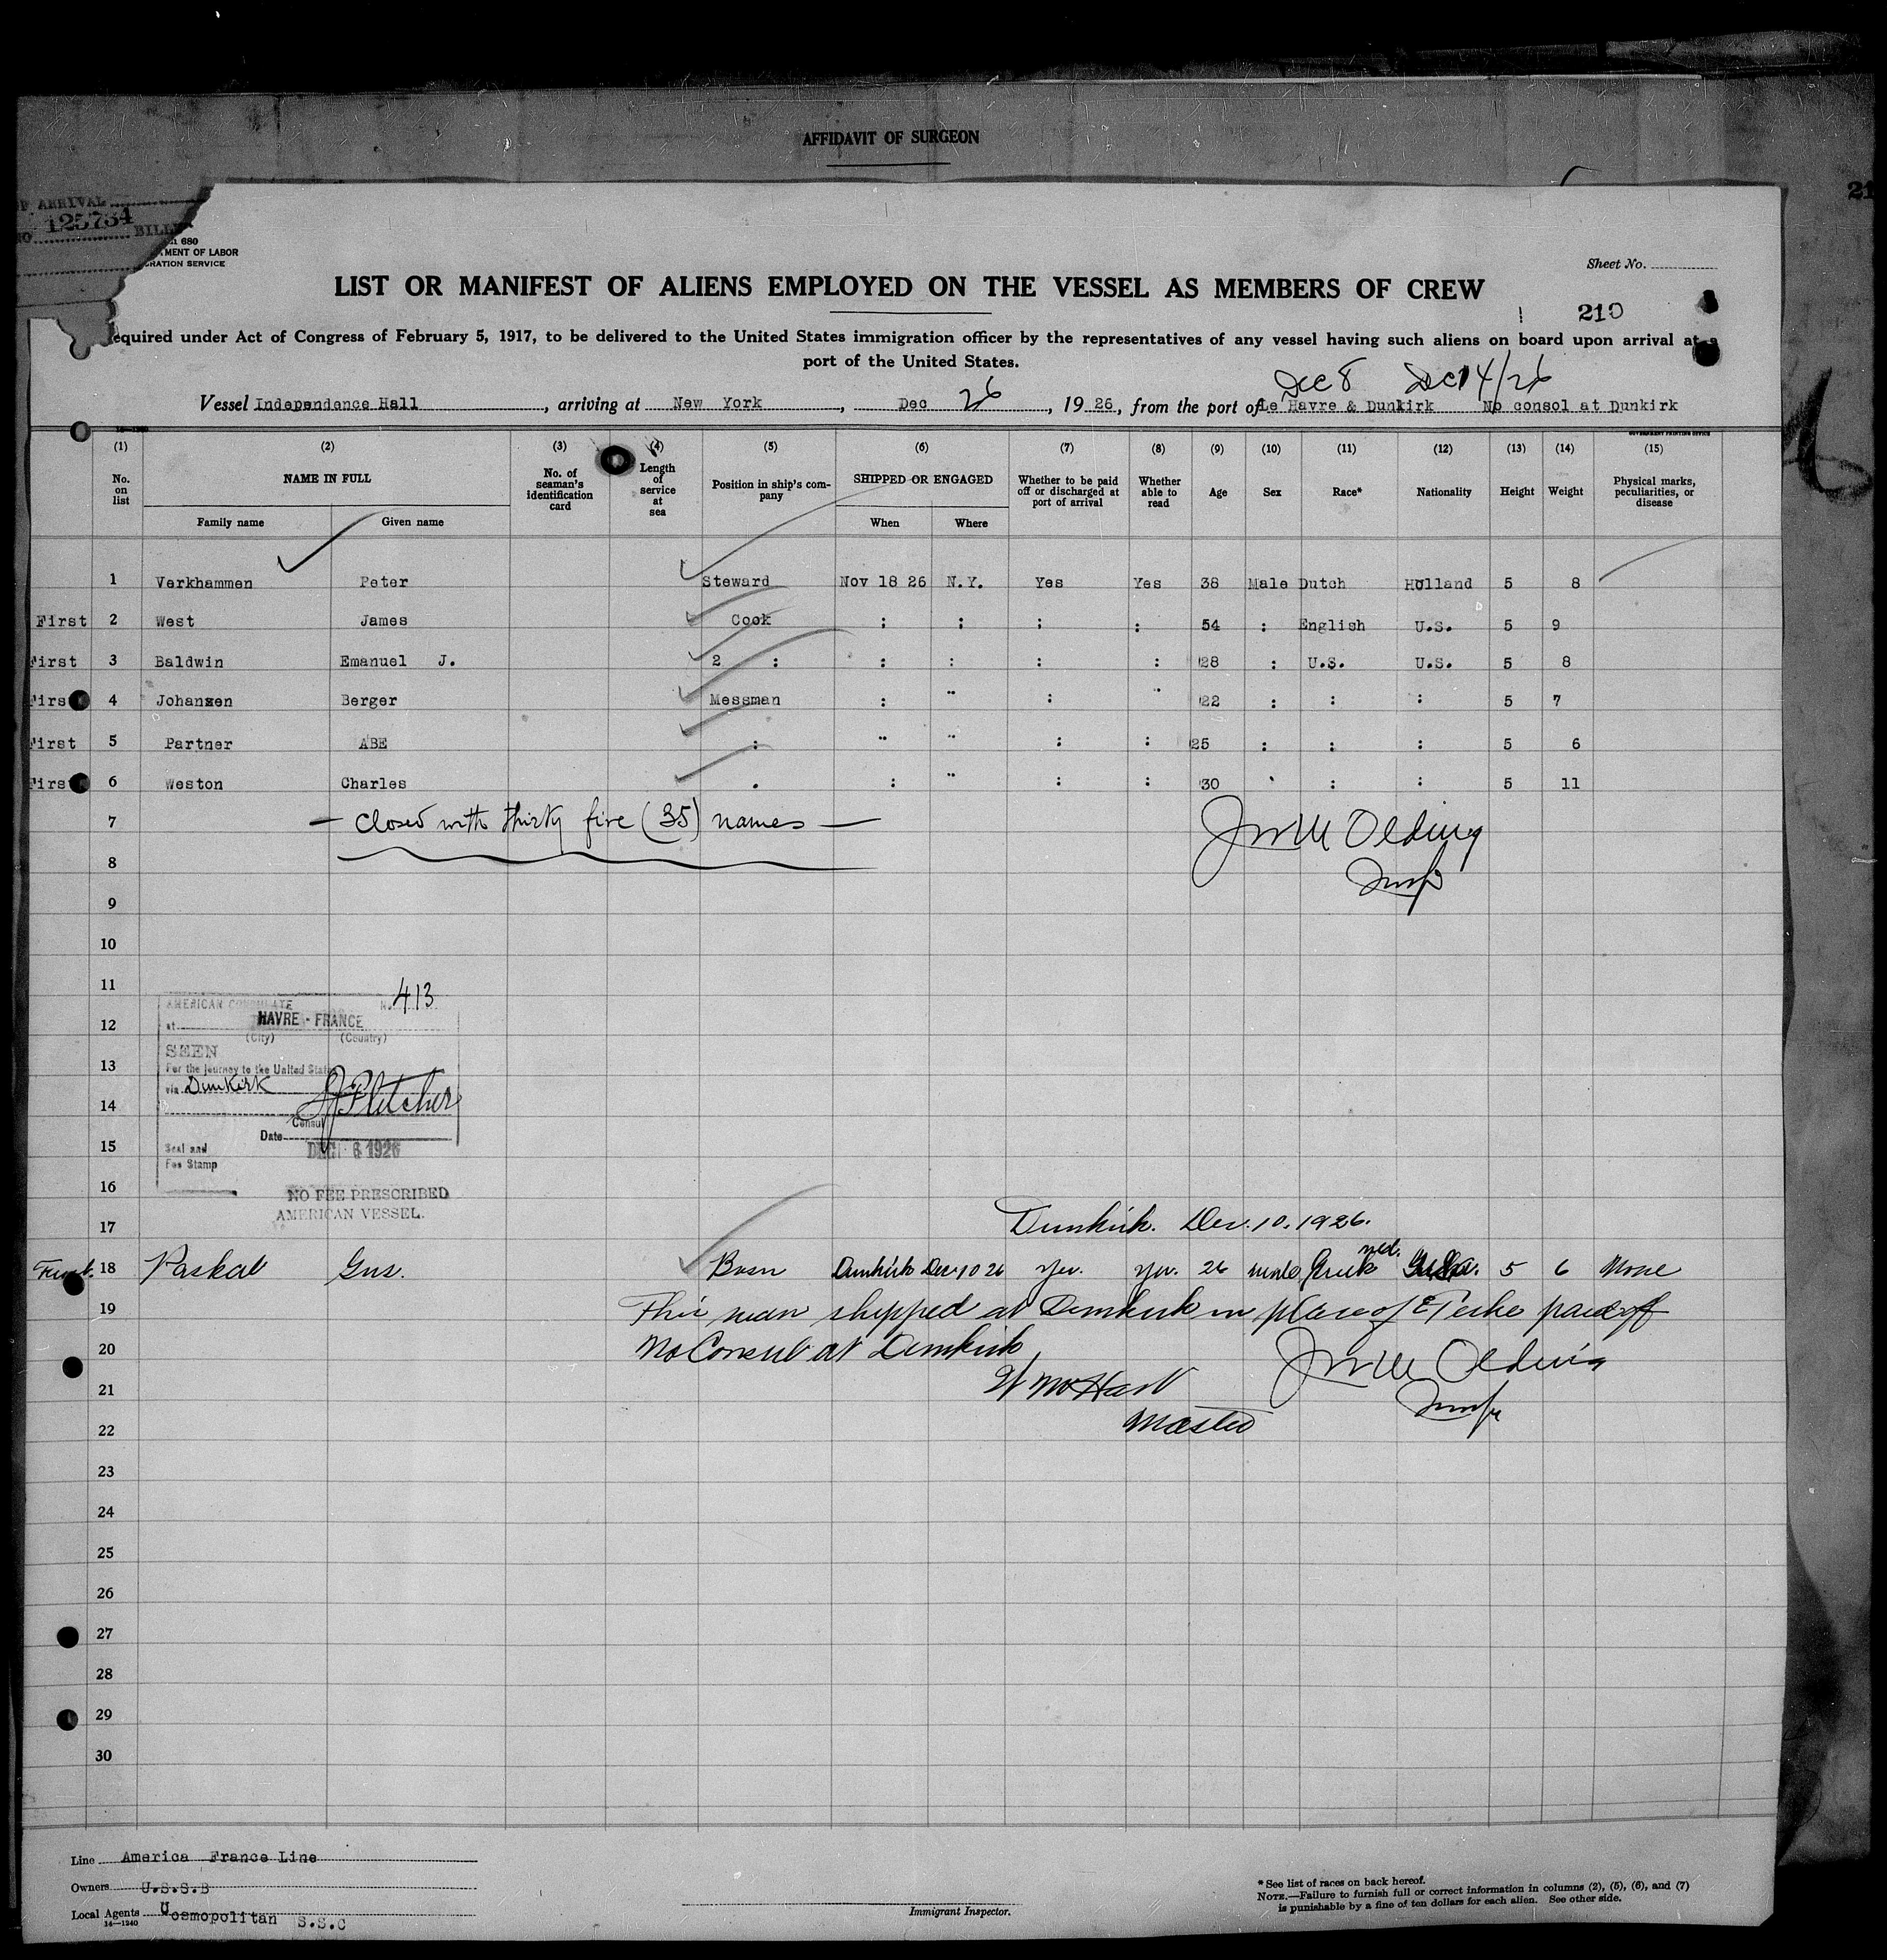 AFFIDAVIT OF SURGEON
ARRIVAL
125734 BILL
680
MENT OF LABOR
RATION SERVICE
21
Sheet No.
LIST OR MANIFEST OF ALIENS EMPLOYED ON THE VESSEL AS MEMBERS OF CREW
210
equired under Act of Congress of February 5, 1917, to be delivered to the United States immigration officer by the representatives of any vessel having such aliens on board upon arrival at a
port of the United States.
Dec 8 Dec 14/26
Vessel Independence Hall, arriving at New York, Dec 26, 1926, from the port of Le Havre & Dunkirk No consol at Dunkirk
GOVERNMENT PRINTING OFFICE
(1) (2) (3) (4) (5) (6) (7) (8) (9) (10) (11) (12) (13) (14) (15)
No. on list NAME IN FULL No. of seaman's identification card Length of service at sea Position in ship's company SHIPPED OR ENGAGED Whether to be paid off or discharged at port of arrival Whether able to read Age Sex Race* Nationality Height Weight Physical marks, peculiarities, or disease
Family name Given name When Where
1 Verkhammen Peter Steward Nov 18 26 N.Y. Yes Yes 38 Male Dutch Holland 5 8
First 2 West James Cook : : : : 54 : English U.S. 5 9
First 3 Baldwin Emanuel J. 2 : : : : : 28 : U.S. U.S. 5 8
First 4 Johansen Berger Messman : " : " 22 : : : 5 7
First 5 Partner ABE : " " : : 25 : : : 5 6
First 6 Weston Charles . : " : : 30 : : 5 11
7 — Closed with thirty five (35) names — Jno M Olding
8
9
10
11
12
13
14
15
16
AMERICAN CONSULATE No. 413
at HAVRE - FRANCE
(City) (Country)
SEEN
For the journey to the United States
via Dunkirk
Fletcher
Consul
Date DEC 6 1926
Seal and
Fee Stamp
NO FEE PRESCRIBED
AMERICAN VESSEL.
17 Dunkirk. Dec. 10. 1926.
First. 18 Paskal Gus. Bosn Dunkirk Dec. 10 26 Yes. Yes. 26 male Greek 5 6 None
19 This man shipped at Dunkirk in place of E Teske paid off
20 No Consul at Dunkirk Jno M Olding
21 W M Hart
22 Master
23
24
25
26
27
28
29
30
Line America France Line
Owners U.S.S.B
Local Agents Cosmopolitan S.S.C
14—1240
Immigrant Inspector.
* See list of races on back hereof.
NOTE.—Failure to furnish full or correct information in columns (2), (5), (6), and (7)
is punishable by a fine of ten dollars for each alien. See other side.